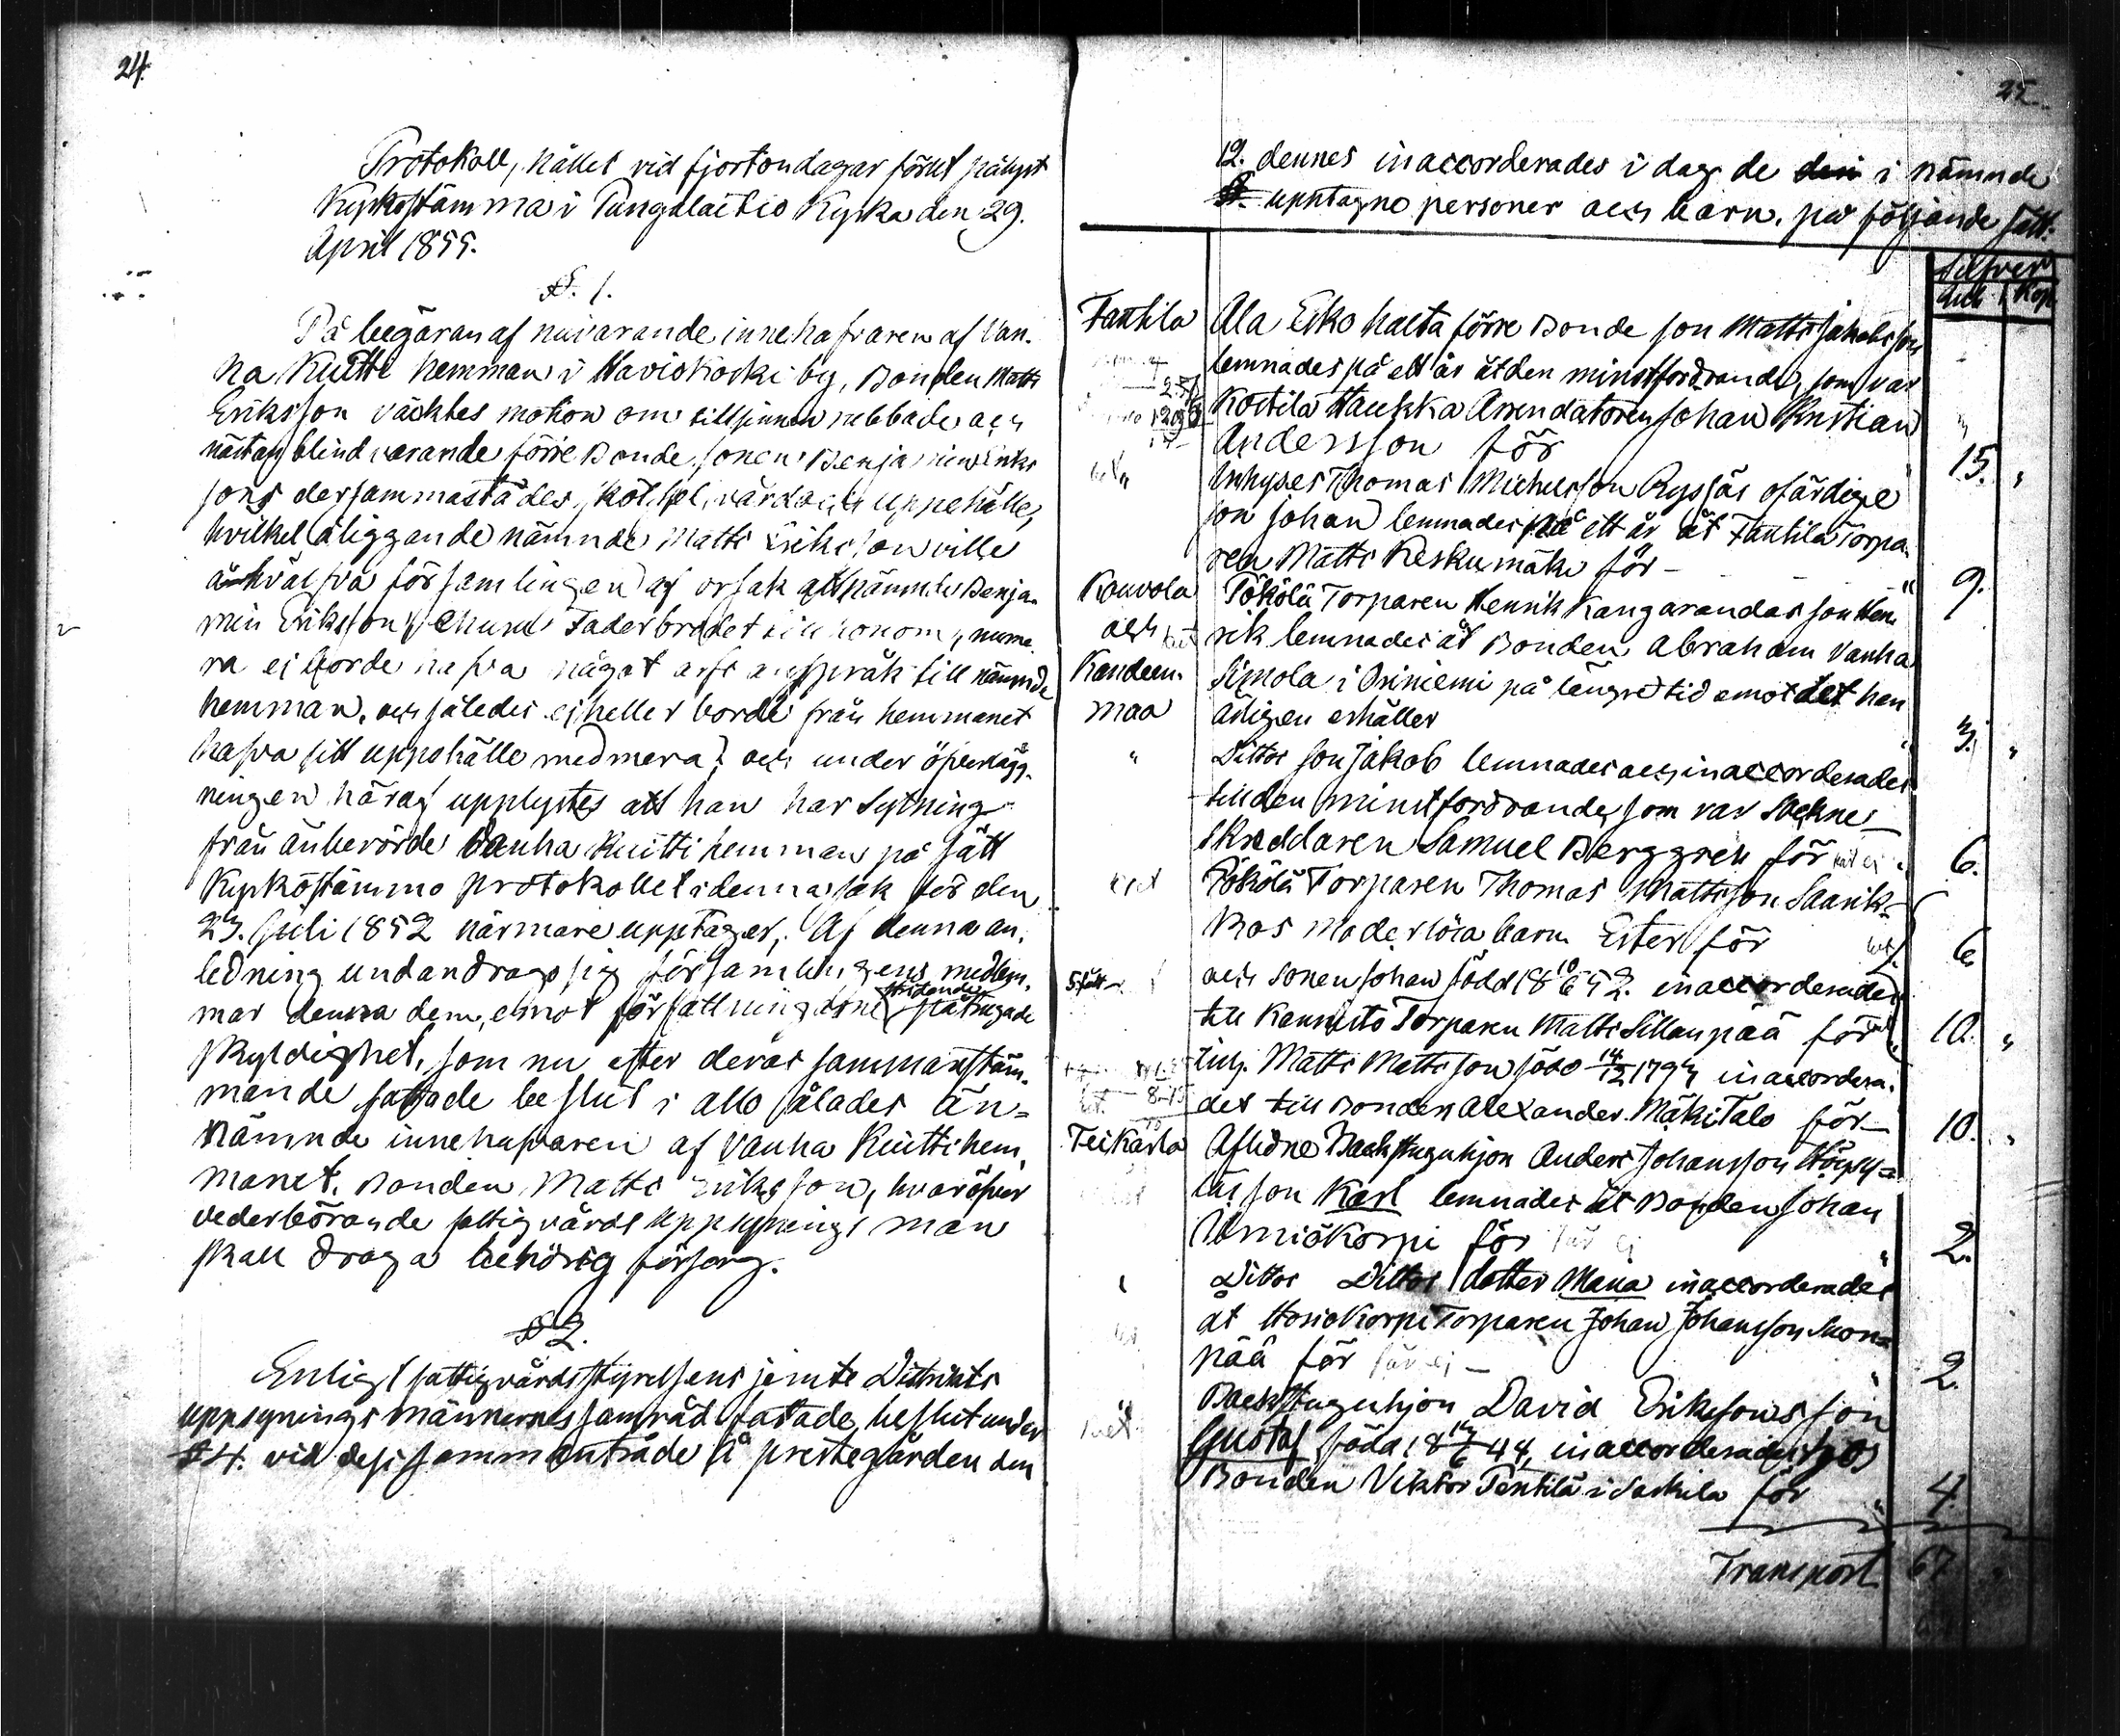 24.
Protokoll, hållet vid fjorton dagar förut pålyst
Kyrkostämma i Pungalaitio Kyrka den 29.
April 1855.
§. 1.
På begäran af nuvarande innehafvaren af Van-
ha Kuitti hemman i Haviokoski by, Bonden Matts
Eriksson väcktes motion om till sinnen rubbade och
nästan blind varande förre Bonde sonen Benjamin Eriks
sons dersammastädes, skötsel, vård och uppehälle,
hvilket åliggande nämnde Matts Eriksson ville
å hvälfva församlingen af orsak att nämnde Benja-
min Eriksson, Faderbrodet till honom, nume
ra ej borde hafva något arfs anspråk till nämnde
hemman, och således ej heller borde från hemmanet
hafva sitt uppehälle med mera; och under öfverlägg-
ningen häraf upplystes att han har Sytning
från änberörde Vanha Kuitti hemman på sätt
Kyrkostämmo protokollet i denna sak för den
23. Juli 1852 närmare upptager. Af denna an-
ledning undandrogo sig församlingens medlem-
mar denna dem, emot författningarne stridande påtrugade
skyldighet, som nu efter deras sammanstäm-
mande fattade beslut i allo ålades än-
nämnde innehafvaren af Vanha Kuitti hem
manet, Bonden Matts Eriksson, hvaröfver
vederbörande fattigvårds uppsynings man
skall draga behörig försorg.
§ 2.
Enligt fattigvårdsstyrelsens jemte Distrikts
uppsynings männernes samråd fattade beslut under
§ 4. vid dess sammanträde å prestegården den
25.
12. dennes inaccorderades i dag de i nämnde
§. upptagne personer och barn, på följande sätt.
Silfver
Rub Kop
Tantila Ala Esko halta förre Bonde son Matts Jakobsson
lemnades på ett år åt den minstfordrande, som var
Kostila Haukka Arrendatoren Johan Kristian
Andersson för 15. "
Inhyses Thomas Michelsson Ryssjäs ofärdige
son Johan lemnades på ett år åt Tantila Torpa-
ren Matts Keskusmäki för — 9.
Kouvola Pökölä Torparen Henrik Kangarandas son Hen-
och rik lemnades åt Bonden Abraham Vanha
Kandeen- Simola i Oriniemi på längre tid emot det han
maa årligen erhåller 3. "
" Dittos son Jakob lemnades och inaccorderades
till den minstfordrande, som var Sockne-
skreddaren Samuel Berggren för 6.
Pökölä Torparen Thomas Mattsson Saarik-
kos moderlösa barn Ester för 6
och sonen Johan född 18 10/6 52. inaccorderades
till Kannisto Torparen Matts Sillanpää för 10. "
Inh. Matts Mattsson född 14/12 1794 inaccordera-
des till Bonden Alexander Mäkitalo för — 10. "
Teikarla Aflidne Backstuguhjon Anders Johansson
son Karl lemnades åt Bonden Johan
Urmiökorpi för 2.
Dittos Dittos dotter Maria inaccorderades
åt Hosiokorpi Torparen Johan Johansson Suon-
pää för 2.
" Backstuguhjon David Erikssons son
Gustaf född 18 44, inaccorderades hos
Bonden Viktor Penttilä i Sarkila för 4.
Transport 67